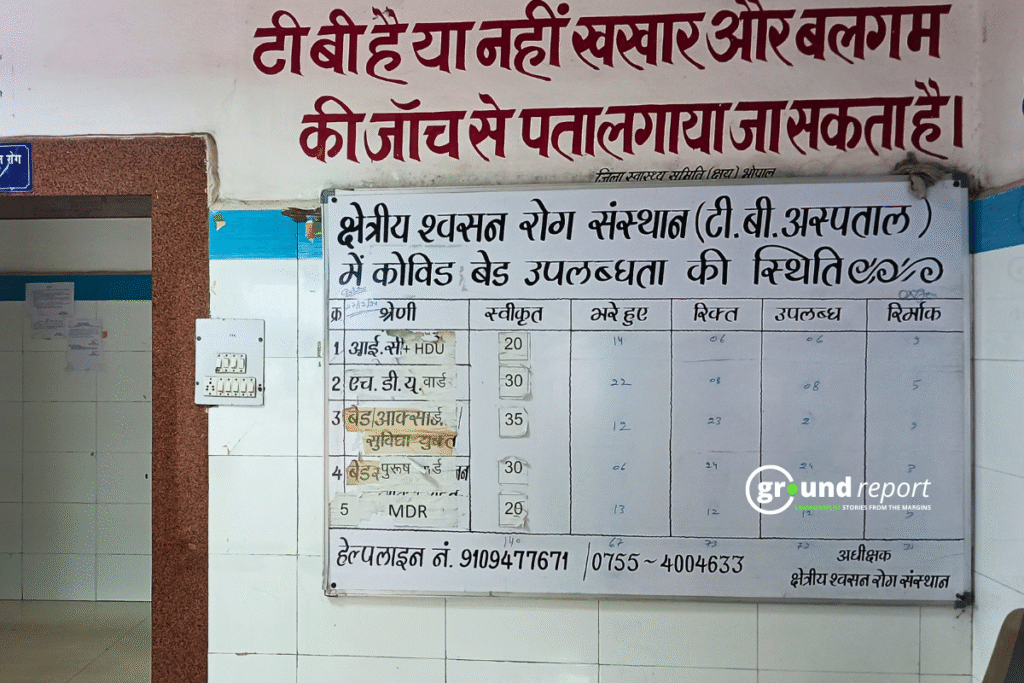 टी बी है या नहीं खखार और बलगम
की जॉच से पता लगाया जा सकता है।
जिला स्वास्थ्य समिति (क्षय) भोपाल
रोग
क्षेत्रीय श्वसन रोग संस्थान (टी.बी.अस्पताल)
में कोविड बेड उपलब्धता की स्थिति
क्र श्रेणी स्वीकृत भरे हुए रिक्त उपलब्ध रिर्माक
1 आई.सी+ HDU 20 14 06 06
2 एच.डी.यू.वार्ड 30 22 08 08 5
3 बेड/आक्साई. 35 12 23 2
सुविधा युक्त
4 बेड पुरूष 30 06 24 24 3
5 MDR 20 13 12 12
140 67 73 72
हेल्पलाइन नं. 9109477671 /0755~4004633
अधीक्षक
क्षेत्रीय श्वसन रोग संस्थान
ground report
STORIES FROM THE MARGINS